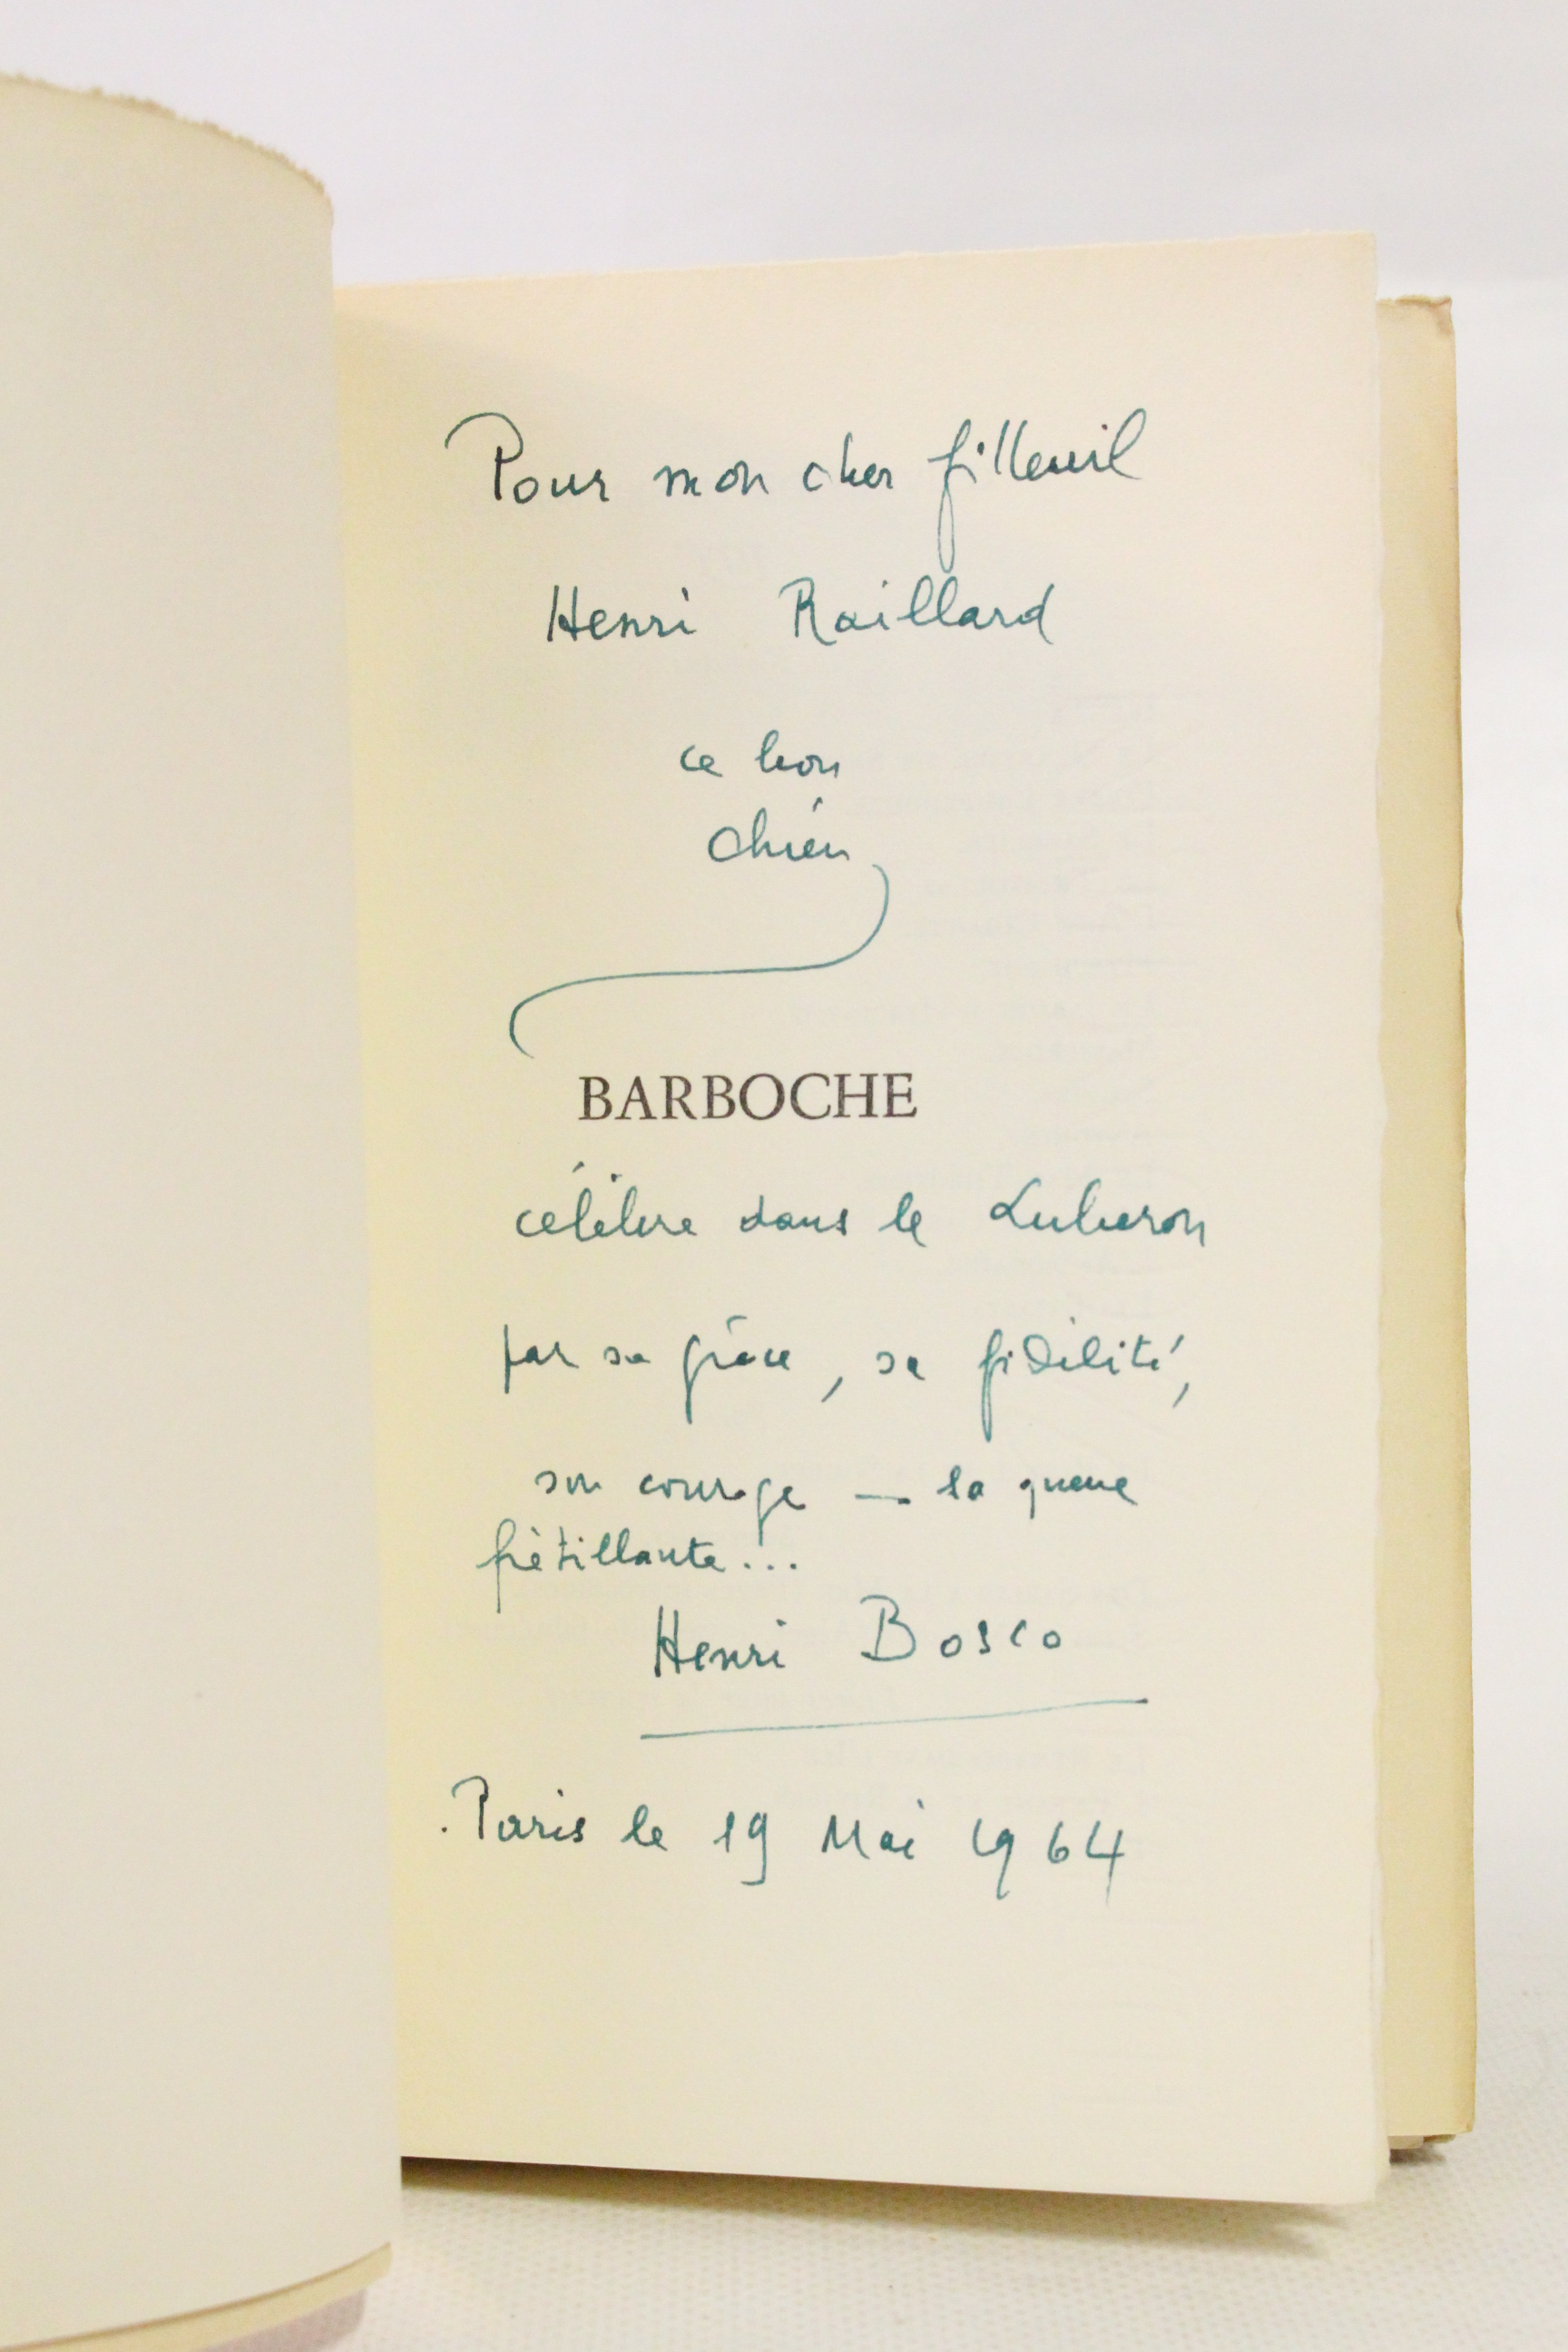 Pour mon cher filleuil
Henri Raillard
ce bon
chien
BARBOCHE
célèbre dans le Luberon
par sa grâce, sa fidélité,
son courage — la queue
frétillante...
Henri Bosco
Paris le 19 Mai 1964